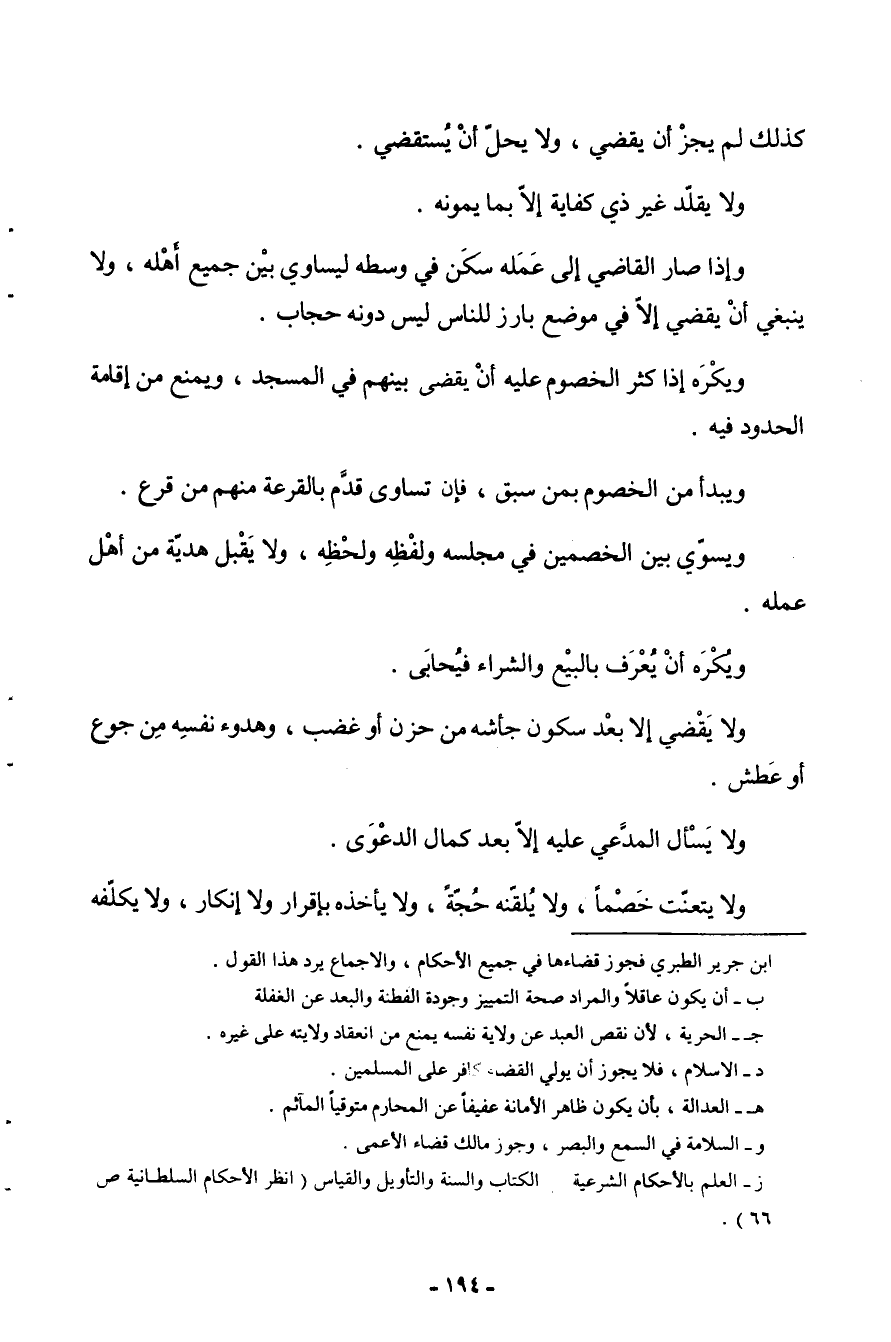 كذلك لم يجزْ أن يقضي ، ولا يحلّ أنْ يُستقضي .
ولا يقلّد غير ذي كفاية إلاّ بما يمونه .
وإذا صار القاضي إلى عَمَله سكَن في وسطه ليساوي بيْن جميع أَهْله ، ولا
ينبغي أنْ يقضي إلاّ في موضع بارز للناس ليس دونه حجاب .
ويكْرَه إذا كثر الخصوم عليه أنْ يقضى بينهم في المسجد ، ويمنع من إقامة
الحدود فيه .
ويبدأ من الخصوم بمن سبق ، فإن تساوى قدَّم بالقرعة منهم من قرع .
ويسوّي بين الخصمين في مجلسه ولفْظِه ولحْظِه ، ولا يَقْبل هديّة من أهْل
عمله .
ويُكْرَه أنْ يُعْرَف بالبيْع والشراء فيُحابَى .
ولا يَقْضي إلا بعْد سكون جأشه من حزن أو غضب ، وهدوء نفسِه مِن جوع
أو عَطش .
ولا يَسْأل المدَّعي عليه إلاّ بعد كمال الدعْوَى .
ولا يتعنّت خَصْماً ، ولا يُلقّنه حُجّةً ، ولا يأخذه بإقرار ولا إنكار ، ولا يكلّفه
ابن جرير الطبري فجوز قضاءها في جميع الأحكام ، والاجماع يرد هذا القول .
ب ـ أن يكون عاقلاً والمراد صحة التمييز وجودة الفطنة والبعد عن الغفلة
جـ ـ الحرية ، لأن نقص العبد عن ولاية نفسه يمنع من انعقاد ولايته على غيره .
د ـ الاسلام ، فلا يجوز أن يولي القضاء كافر على المسلمين .
هـ ـ العدالة ، بأن يكون ظاهر الأمانة عفيفاً عن المحارم متوقياً المآثم .
و ـ السلامة في السمع والبصر ، وجوز مالك قضاء الأعمى .
ز ـ العلم بالأحكام الشرعية الكتاب والسنة والتأويل والقياس ( انظر الأحكام السلطانية ص
٦٦ ) .
- ١٩٤ -